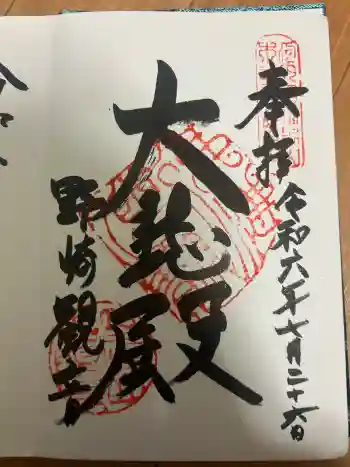 奉拝
令和六年七月二十六日
大悲殿
野崎観音